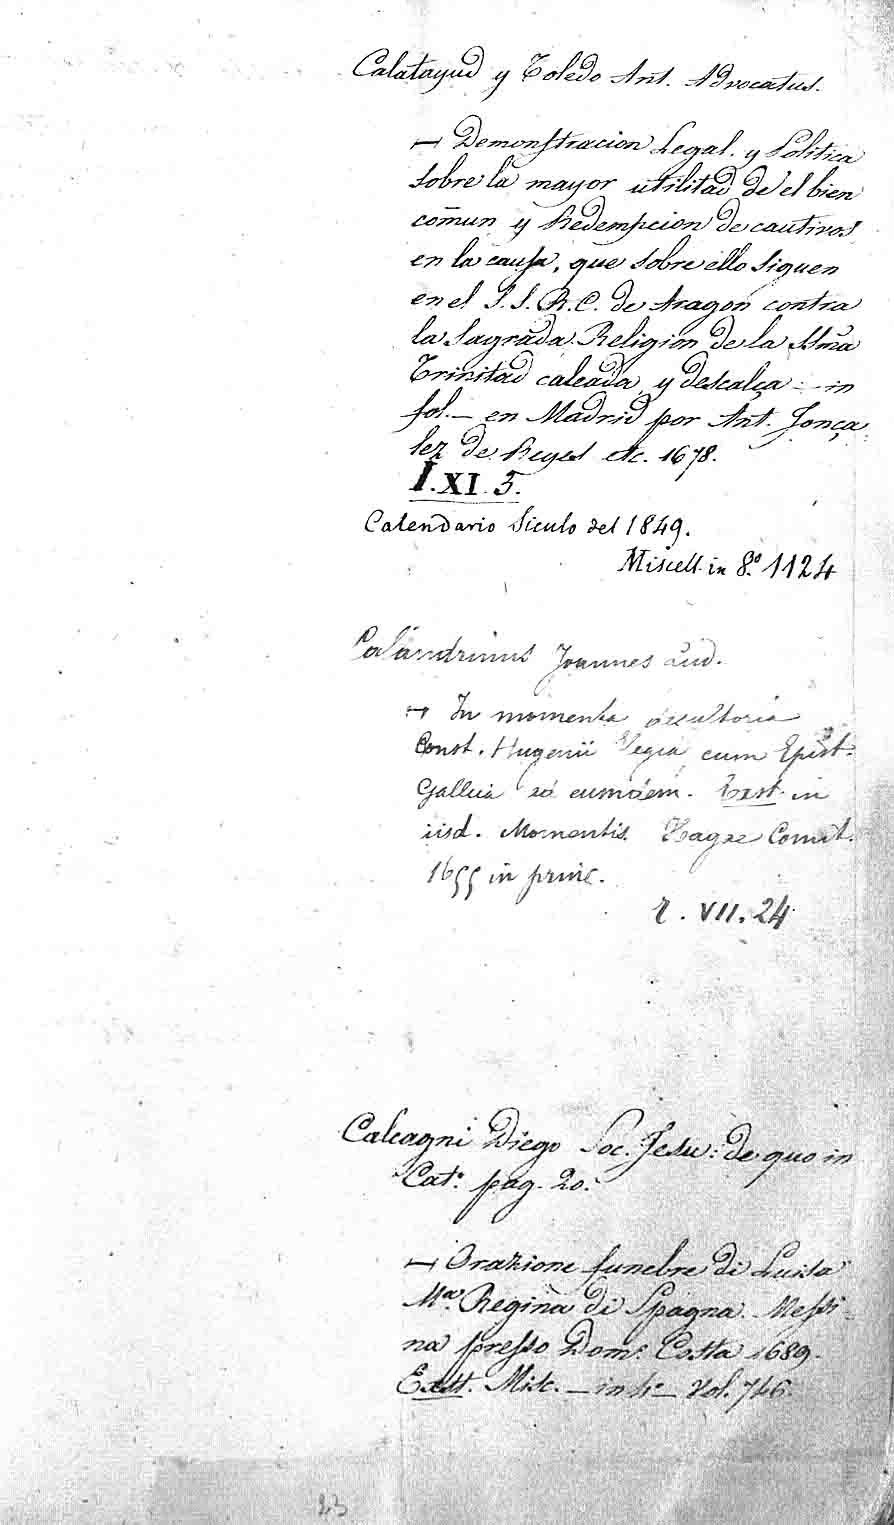 Calatayud y Toledo Ant. Advocatus.
— Demonstracion Legal. y Politica
sobre la mayor utilitad de el bien
comun y Redempcion de cautivos
en la causa, que sobre ello siguen
en el S. S. R. C. de Aragon contra
la Sagrada Religion de la SSma
Trinitad calcada, y descalça — in
fol. — en Madrid por Ant. Gonça
lez de Reyes etc. 1678.
I. XI. 5.
Calendario Siculo del 1849.
Miscell. in 8.º 1124
Calandrinus Joannes Lud.
— In momenta desultoria
Const. Hugenii Elegia, cum Epist.
Gallica ad eumdem. Exst. in
iisd. Momentis. Hagae Comit.
1655 in princ.
VII. 24
Calcagni Diego Soc. Jesu: de quo in
Cat.º pag. 20.
— Orazione funebre di Luisa
Mª Regina di Spagna. Messi-
na presso Dom.º Costa 1689.
Exst. Misc. — in 4.º — Vol. 746.
23